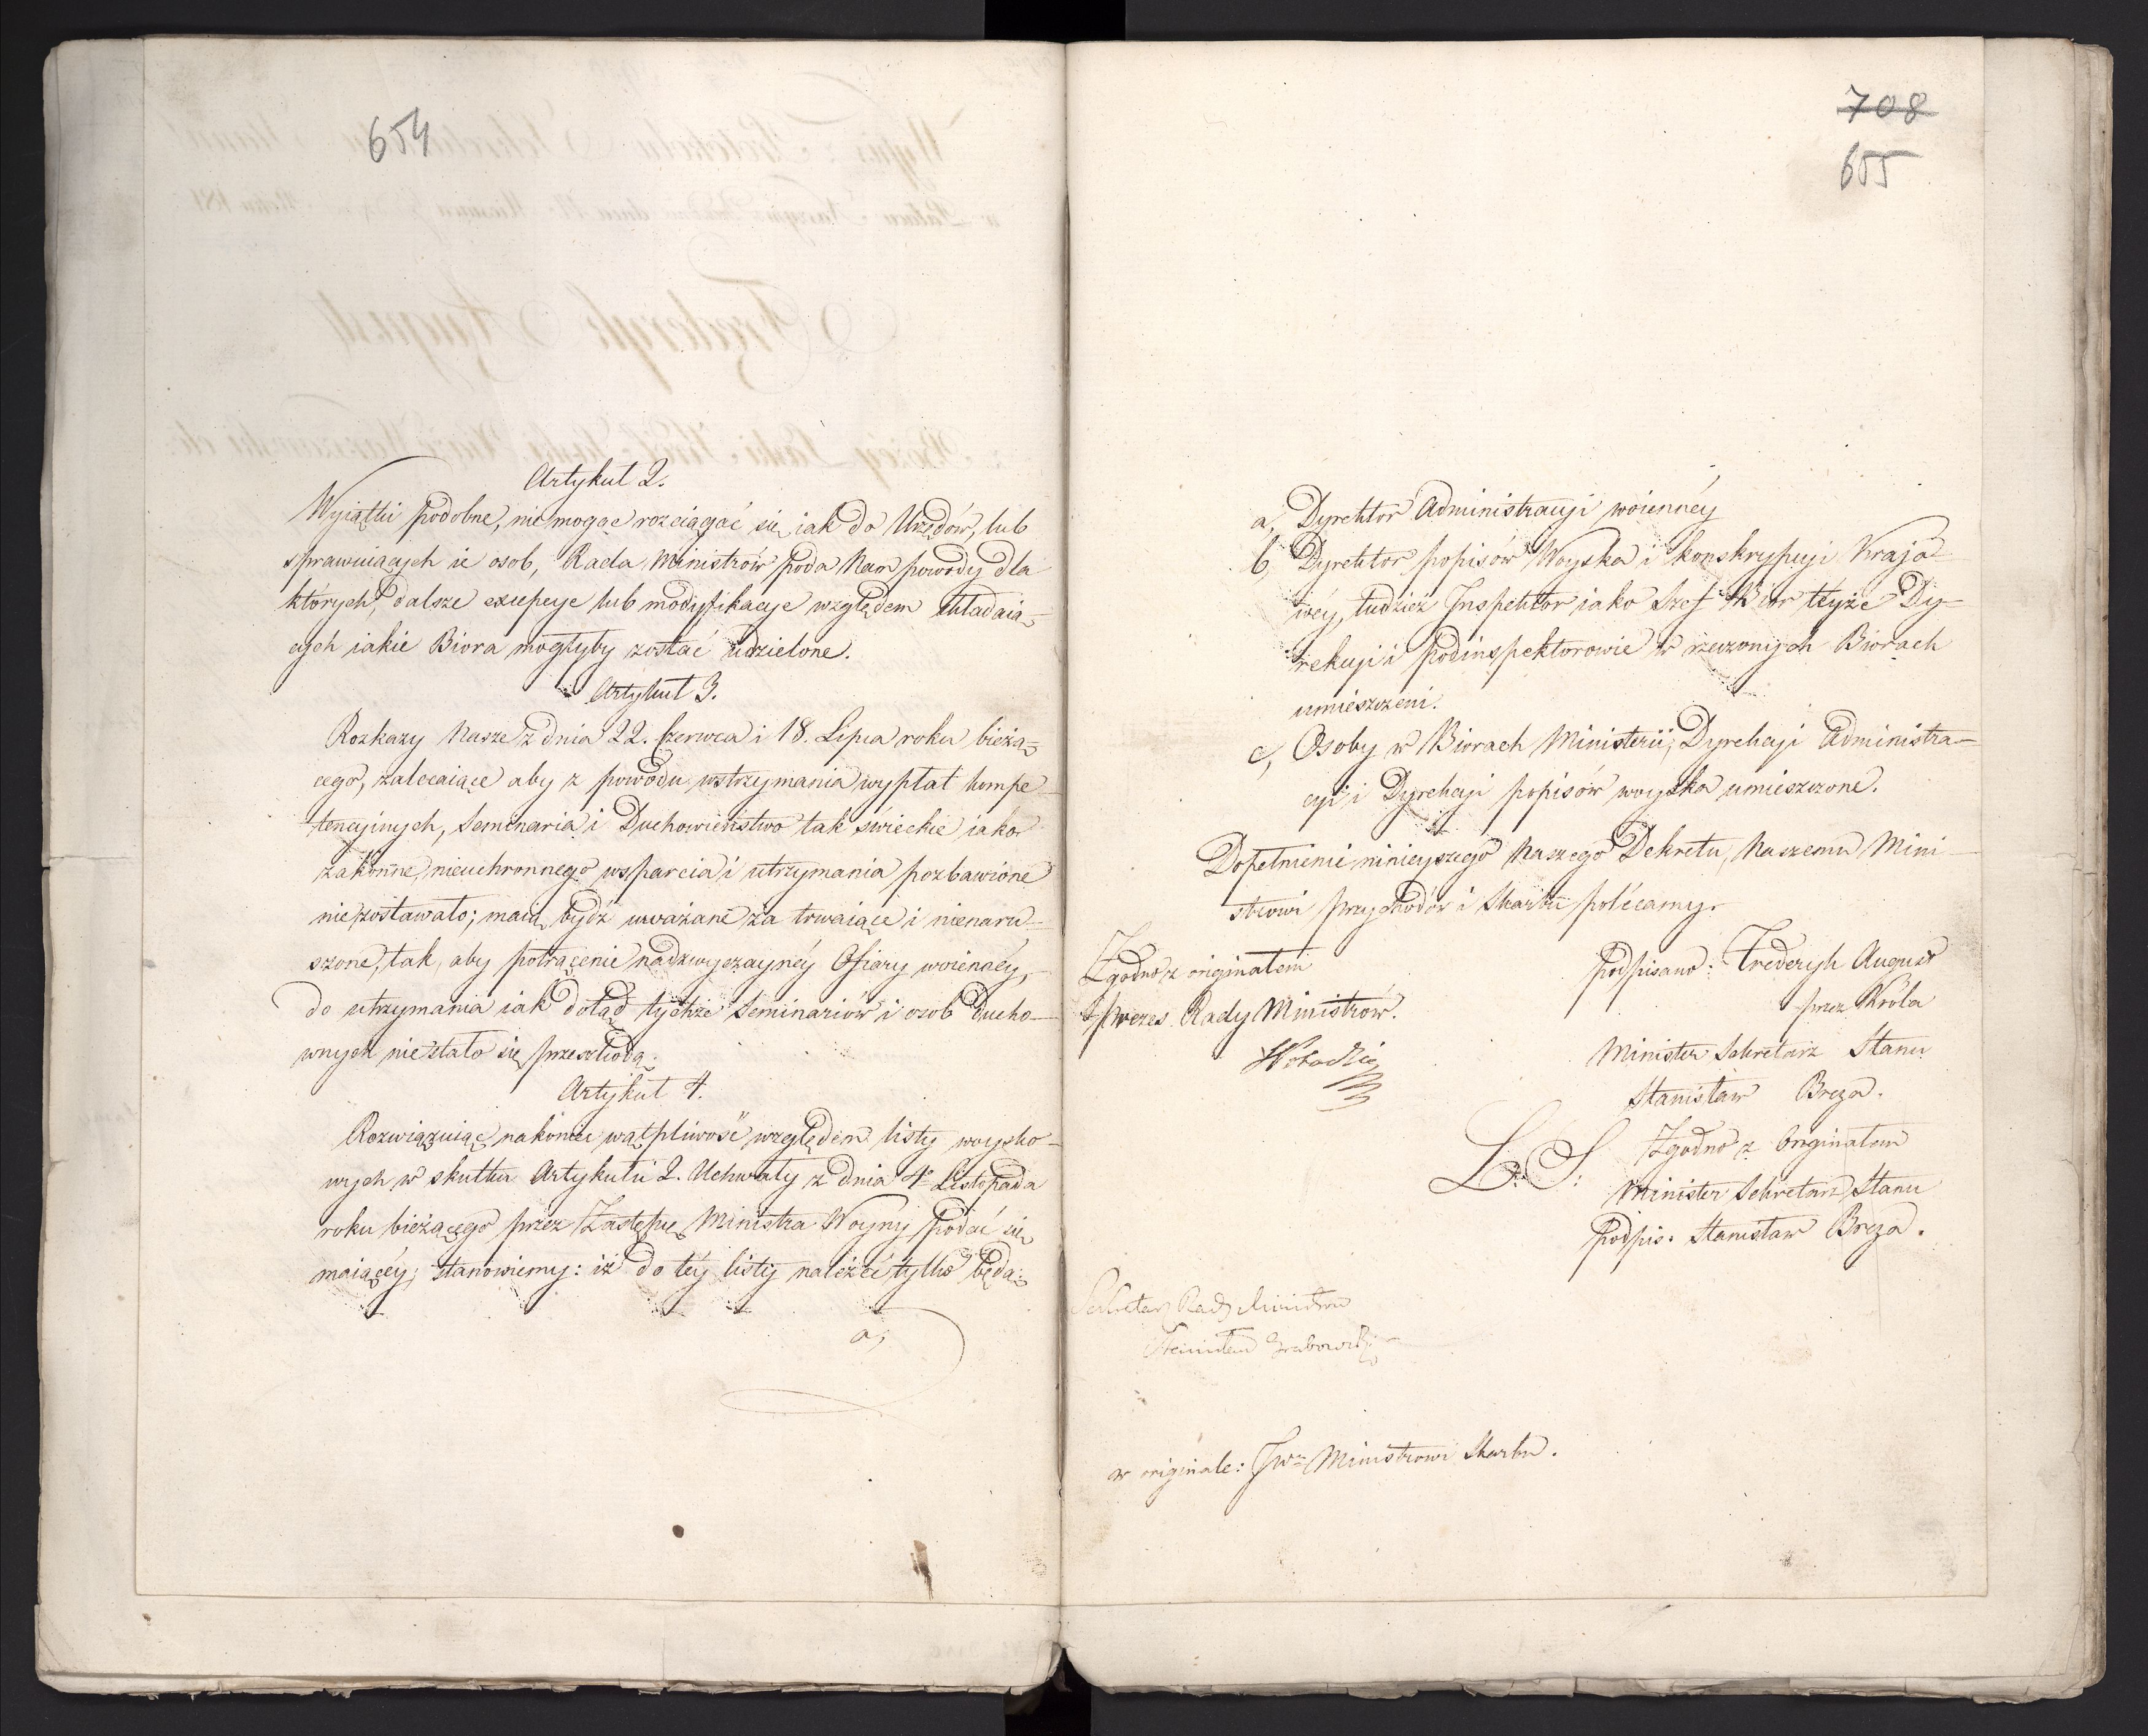 654
Artykuł 2.
Wyiątki podobne, nie mogąc rozciągać się iak do Urzędów, lub
sprawuiących ie osob, Rada Ministrów poda Nam powody dla
których, dalsze excepcye lub modyfikacye względem składaią=
cych iakie Biora mogłyby zostać udzielone.
Artykuł 3.
Rozkazy Nasze z dnia 22. Czerwca i 18. Lipca roku bieżą=
cego, zalecaiące aby z powodu wstrzymania wypłat kompe-
tencyinych, Seminaria i Duchowieństwo tak świeckie iako
zakonne, nieuchronnego wsparcia i utrzymania pozbawione
nie zostawało; maią bydź uważane za trwaiące i nienaru=
szone, tak, aby potrącenie nadzwyczayney Ofiary woienney,
do utrzymania iak dotąd tychże Seminariów i osob ducho-
wnych nie stało się przeszkodą.
Artykuł 4.
Rozwiązuiąc nakoniec wątpliwość względem listy woysko-
wych w skutku Artykułu 2. Uchwały z dnia 4º Listopada
roku bieżącego przez Zastępcę Ministra Woyny podać się
maiącéy; stanowiemy: iż do téy listy należéć tylko będą:
a,
708
655
a, Dyrektor Administracyi woiennéy
b, Dyrektor popisów Woyska i konskrypcyi Krajo-
wéy, tudzież Inspektor iako Szef Biór téyże Dy-
rekcyi i Podinspektorowie w rzeczonych Biorach
umieszczeni.
c, Osoby w Biorach Ministerii, Dyrekcyi Administra-
cyi i Dyrekcyi popisów woyska umieszczone.
Dopełnienie ninieyszego Naszego Dekretu, Naszemu Mini-
strowi przychodów i Skarbu polecamy.
Zgodno z originałem
Prezes Rady Ministrów.
podpisano: Frederyk August
przez Króla
Minister Sekretarz Stanu
Stanisław Breza.
L. S. Zgodno z Originałem
Minister Sekretarz Stanu
podpis: Stanisław Breza.
Sekretarz Rady Ministrów
Stanisław Grabowski
w originale: JWu Ministrowi Skarbu.